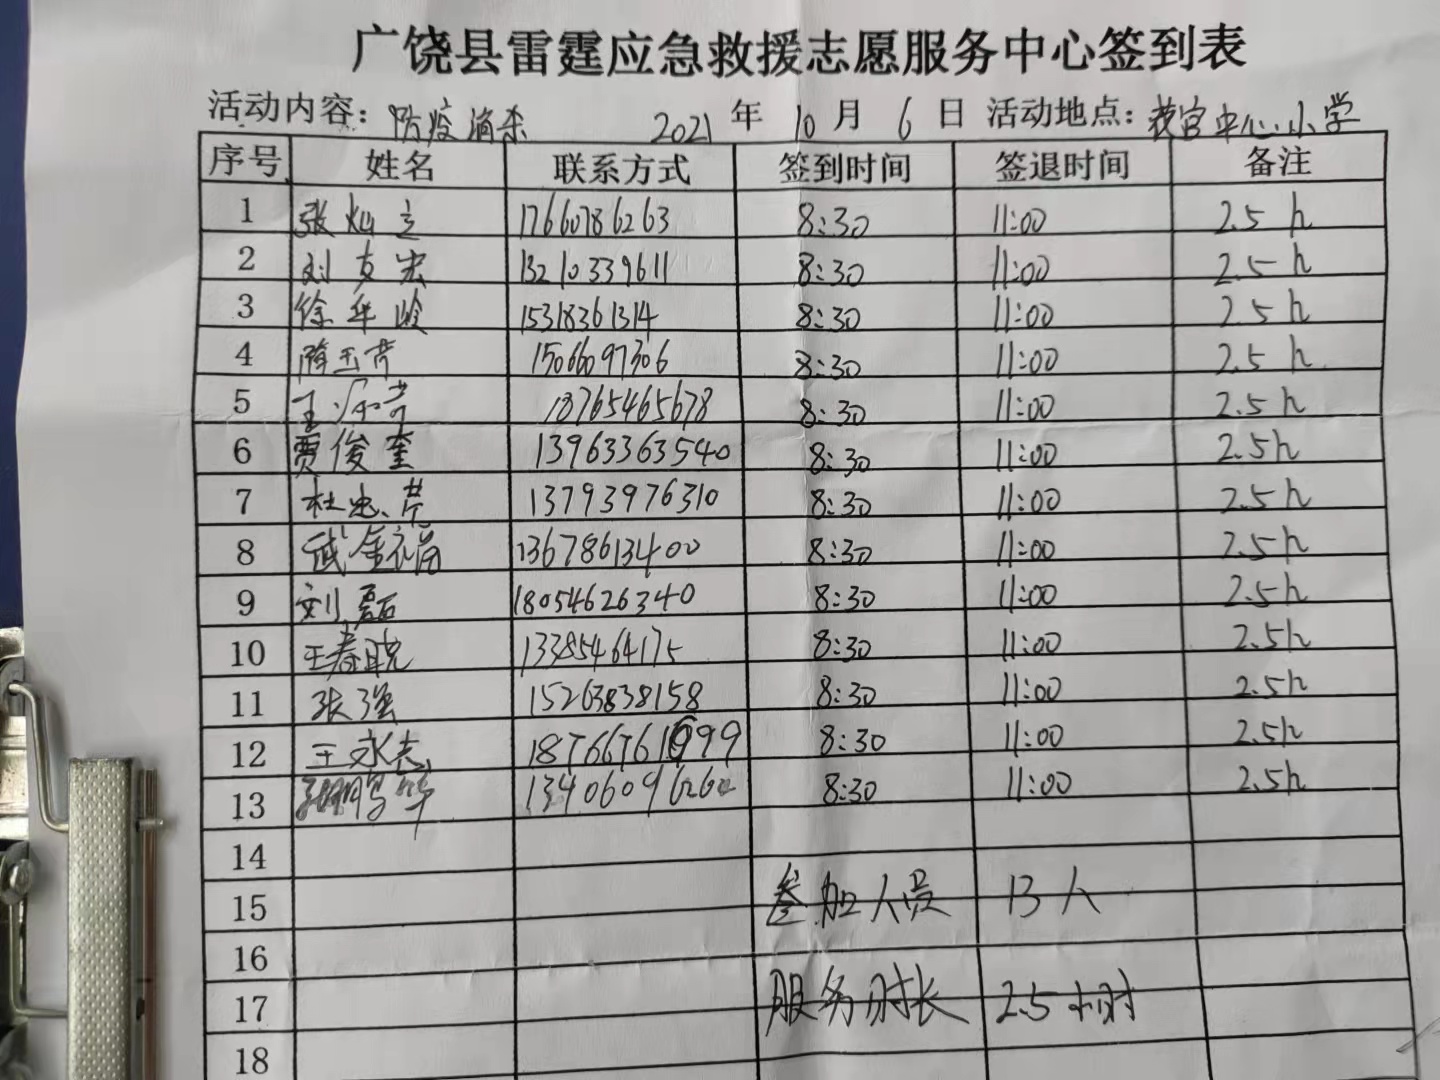 广饶县雷霆应急救援志愿服务中心签到表
活动内容：防疫消杀 2021年10月6日 活动地点：花官中心小学
序号 姓名 联系方式 签到时间 签退时间 备注
1 张灿之 17660786263 8:30 11:00 2.5h
2 刘友宏 13210339611 8:30 11:00 2.5h
3 徐华岭 15318361314 8:30 11:00 2.5h
4 隋玉芹 15066097306 8:30 11:00 2.5h
5 王 18765465678 8:30 11:00 2.5h
6 贾俊奎 13963363540 8:30 11:00 2.5h
7 杜忠芹 13793976310 8:30 11:00 2.5h
8 成金福 13678613400 8:30 11:00 2.5h
9 刘磊 18054626340 8:30 11:00 2.5h
10 王春晓 13385464175 8:30 11:00 2.5h
11 张强 15263838158 8:30 11:00 2.5h
12 王永志 18766761999 8:30 11:00 2.5h
13 鹏华 13406096260 8:30 11:00 2.5h
14
15 参加人员 13人
16
17 服务时长 2.5小时
18